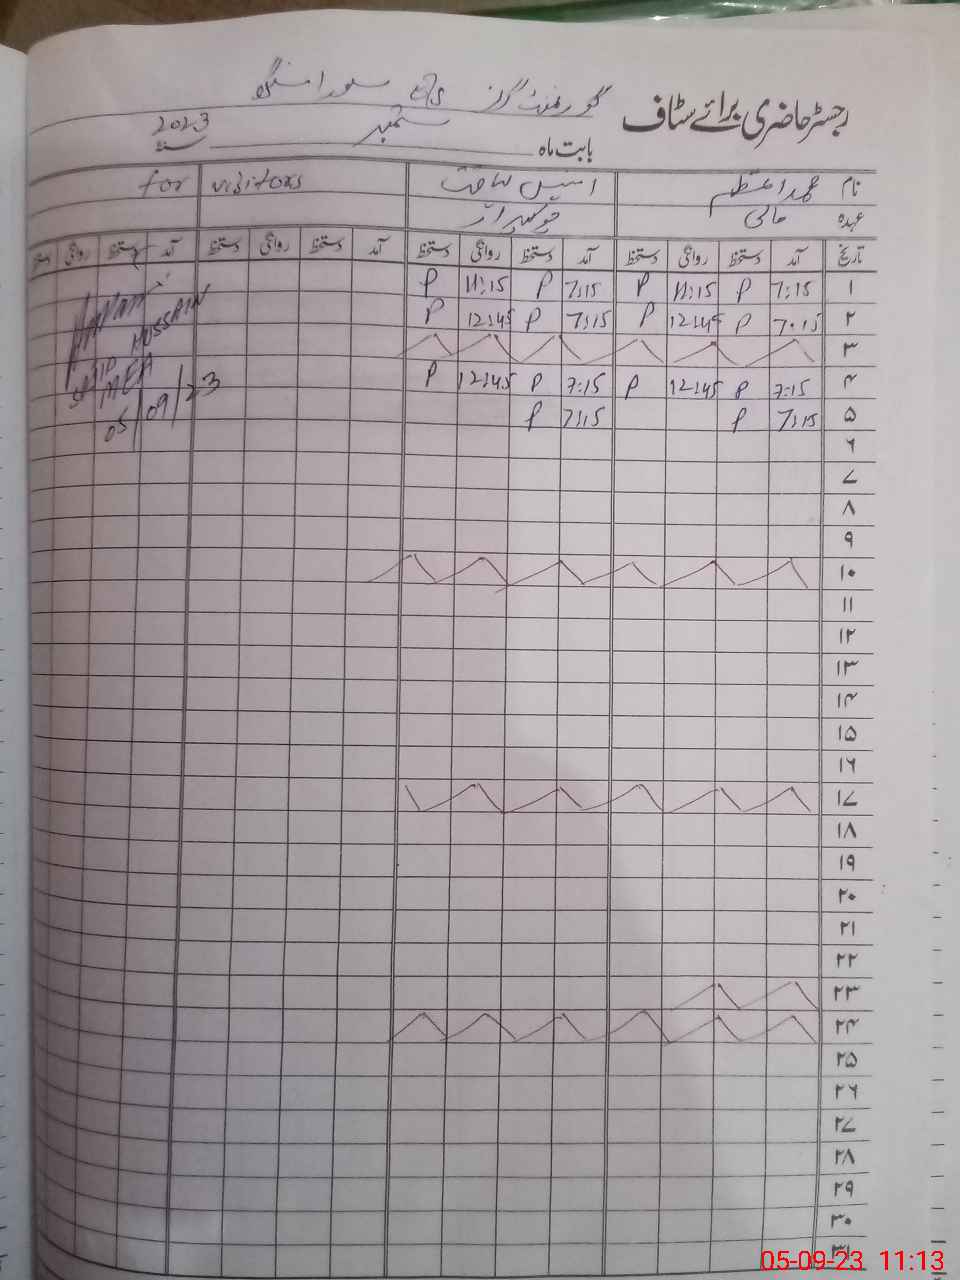 رجسٹر حاضری برائے سٹاف
گورنمنٹ گرلز
بابت ماہ ستمبر سنہ 2023
نام محمد اعظم for visitors
عہدہ مالی چوکیدار
تاریخ آمد دستخط روانگی دستخط آمد دستخط روانگی دستخط آمد دستخط روانگی دستخط آمد دستخط روانگی دستخط
۱ 7:15 P 11:15 P 7:15 P 11:15 P
۲ 7:15 P 12:45 P 7:15 P 12:45 P
۳
۴ 7:15 P 12:45 P 7:15 P 12:45 P
۵ 7:15 P 7:15 P
SAJID HUSSAIN
MEA
05/09/23
۶
۷
۸
۹
۱۰
۱۱
۱۲
۱۳
۱۴
۱۵
۱۶
۱۷
۱۸
۱۹
۲۰
۲۱
۲۲
۲۳
۲۴
۲۵
۲۶
۲۷
۲۸
۲۹
۳۰
۳۱
05-09-23 11:13